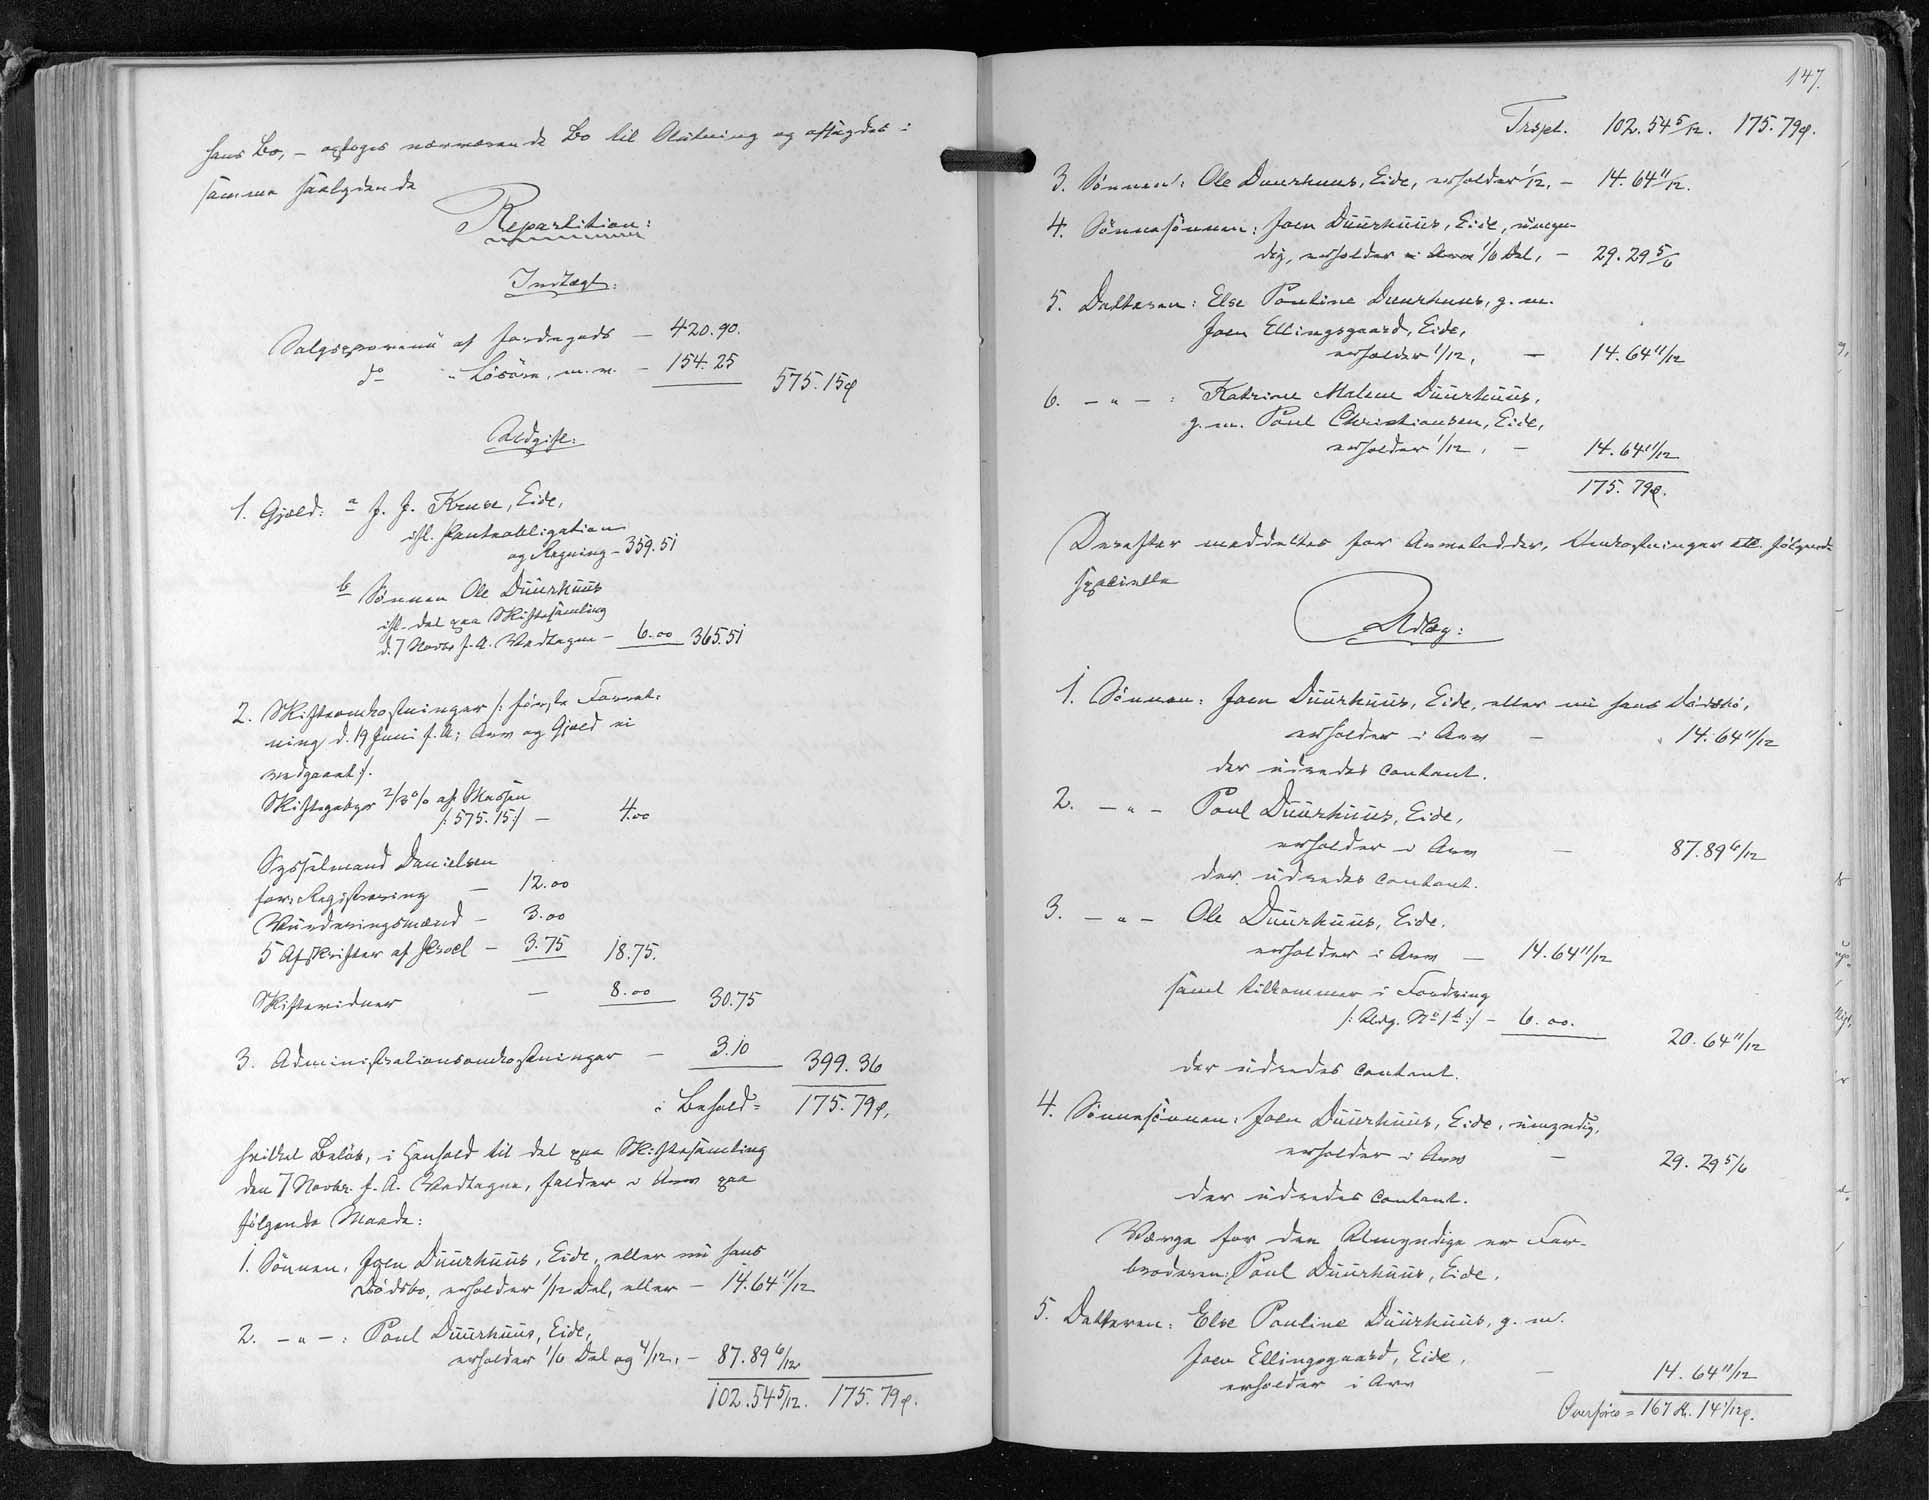 hans Bo, – optoges nærværende Bo til Slutning og afsagdes i
samme saalydende
Repartition:
Indtægt:
Salgsprovenü af Jordegods – 420.90.
do " Løsøre, m.m. – 154.25 575.15ø
Udgift:
1. Gjæld: a J. J. Kruse, Eide,
ifl. Panteobligation
og Regning – 359.51
b Sønnen Ole Duurhuus
ifl. det paa Skiftesamling
d. 7 Novbr f.A. Vedtagne – 6.00 365.51
2. Skifteomkostninger /: første Forret-
ning d. 19 Juni f.A; Arv og Gjæld ei
vedgaaet :/.
Skiftegebyr 2/3 % af Massen
/: 575.15 :/ – 4.00
Sysselmand Danielsen
for: Registrering – 12.00
Vurderingsmænd – 3.00
5 Afskrifter af Protocol – 3.75 18.75.
Skiftevidner – 8.00 30.75
3. Administrationsomkostninger – 3.10 399.36
i Behold = 175.79ø.
hvilket Beløb, i Henhold til det paa Skiftesamling
den 7 Novbr. f.A. Vedtagne, falder i Arv paa
følgende Maade:
1. Sønnen, Joen Duurhuus, Eide, eller nu hans
Dødsbo, erholder 1/12 Del, eller – 14.64 11/12
2. – " – : Poul Duurhuus, Eide,
erholder 1/6 Del og 4/12, – 87.89 6/12
102.54 5/12. 175.79ø.
147.
Trspt. 102.54 5/12. 175.79ø.
3. Sønnen: Ole Duurhuus, Eide, erholder 1/12, – 14.64 11/12.
4. Sønnesønnen: Joen Duurhuus, Eide, umyn-
dig, erholder i Arv 1/6 Del, – 29.29 5/6
5. Datteren: Else Pouline Duurhuus, g.m.
Joen Ellingsgaard, Eide,
erholder 1/12, – 14.64 11/12
6. – " – : Katrine Malene Duurhuus,
g.m. Poul Christiansen, Eide,
erholder 1/12, – 14.64 11/12
175.79ø.
Derefter meddeltes for Arvelodder, Omkostninger etc. følgende
specielle
Udlæg:
1. Sønnen: Joen Duurhuus, Eide, eller nu hans Dødsbo,
erholder i Arv – 14.64 11/12
der udredes contant.
2. – " – Poul Duurhuus, Eide,
erholder i Arv – 87.89 6/12
der udredes contant.
3. – " – Ole Duurhuus, Eide.
erholder i Arv – 14.64 11/12
samt tilkommer i Fordring
/: Udg. No 1 b :/ – 6.00. 20.64 11/12
der udredes contant.
4. Sønnesönnen: Joen Duurhuus, Eide, umyndig,
erholder i Arv – 29.29 5/6
der udredes contant.
Værge for den Umyndige er Far-
broderen: Poul Duurhuus, Eide.
5. Datteren: Else Pouline Duurhuus, g.m.
Joen Ellingsgaard, Eide,
erholder i Arv – 14.64 11/12
Overføres = 167 Kr. 14 1/12ø.